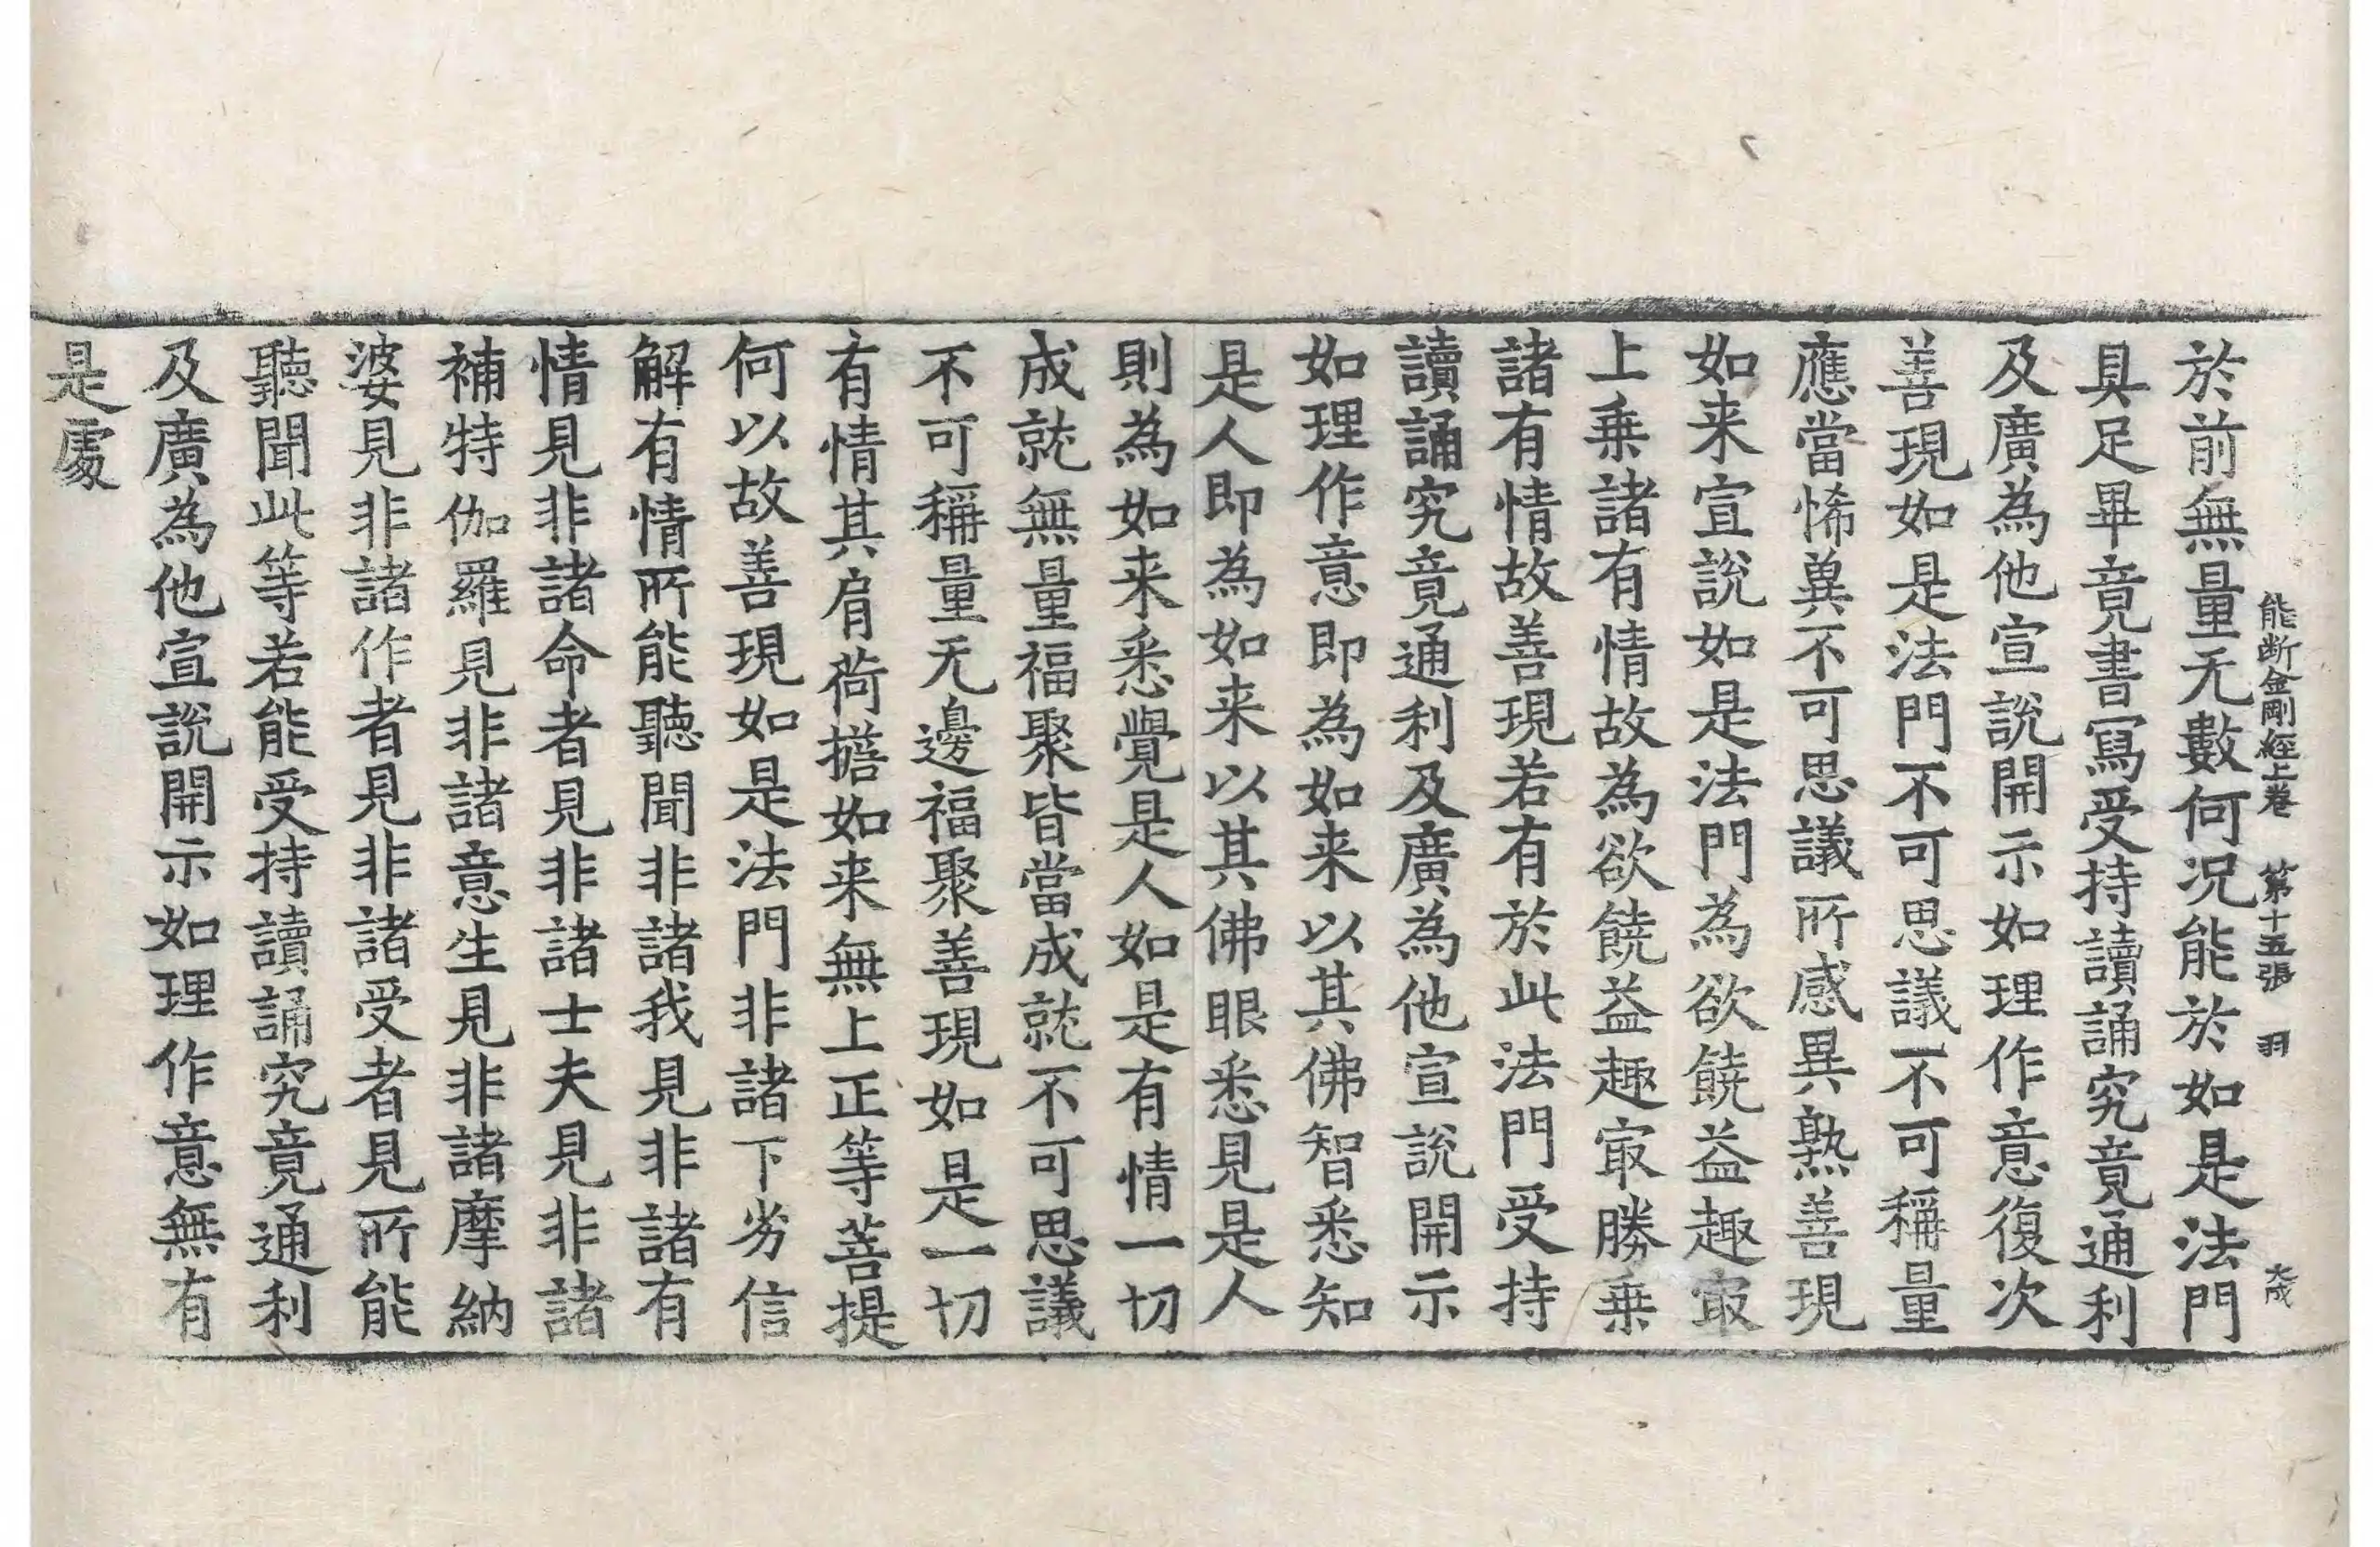 能断金剛經上卷 第十五張 羽 大成
於前無量无數何况能於如是法門
具足畢竟書寫受持讀誦究竟通利
及廣為他宣說開示如理作意復次
善現如是法門不可思議不可稱量
應當悕兾不可思議所感異熟善現
如来宣說如是法門為欲饒益趣㝡
上乗諸有情故為欲饒益趣㝡勝乗
諸有情故善現若有於此法門受持
讀誦究竟通利及廣為他宣說開示
如理作意即為如来以其佛智悉知
是人即為如来以其佛眼悉見是人
則為如来悉覺是人如是有情一切
成就無量福聚皆當成就不可思議
不可稱量无邊福聚善現如是一切
有情其肩荷擔如来無上正等菩提
何以故善現如是法門非諸下劣信
解有情所能聽聞非諸我見非諸有
情見非諸命者見非諸士夫見非諸
補特伽羅見非諸意生見非諸摩納
婆見非諸作者見非諸受者見所能
聽聞此等若能受持讀誦究竟通利
及廣為他宣說開示如理作意無有
是處